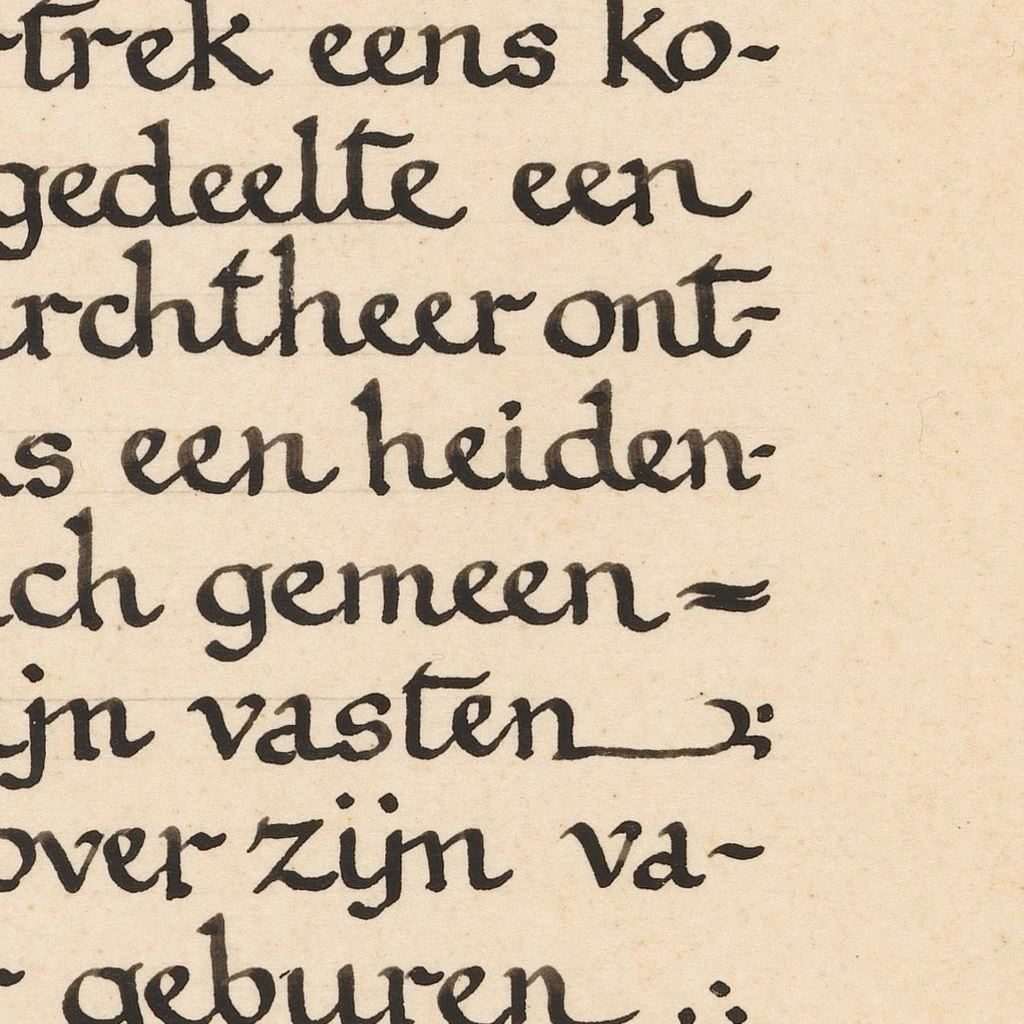 trek eens ko-
gedeelte een
rchtheer ont-
s een heiden-
ch gemeen=
ijn vasten;
over zijn va-
geburen